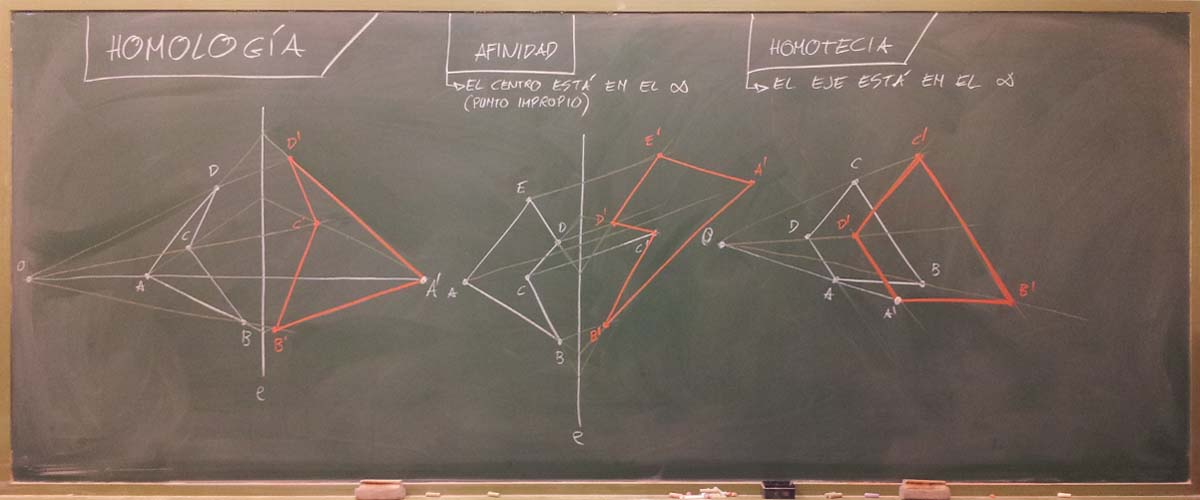 HOMOLOGÍA
AFINIDAD
↳EL CENTRO ESTÁ EN EL ∞
(PUNTO IMPROPIO)
HOMOTECIA
↳EL EJE ESTÁ EN EL ∞
D'
D
C'
C
O
A
A'
B
B'
e
E'
A'
E
D'
D
C'
A
C
B'
B
e
C'
C
D
D'
O
A
B
A'
B'